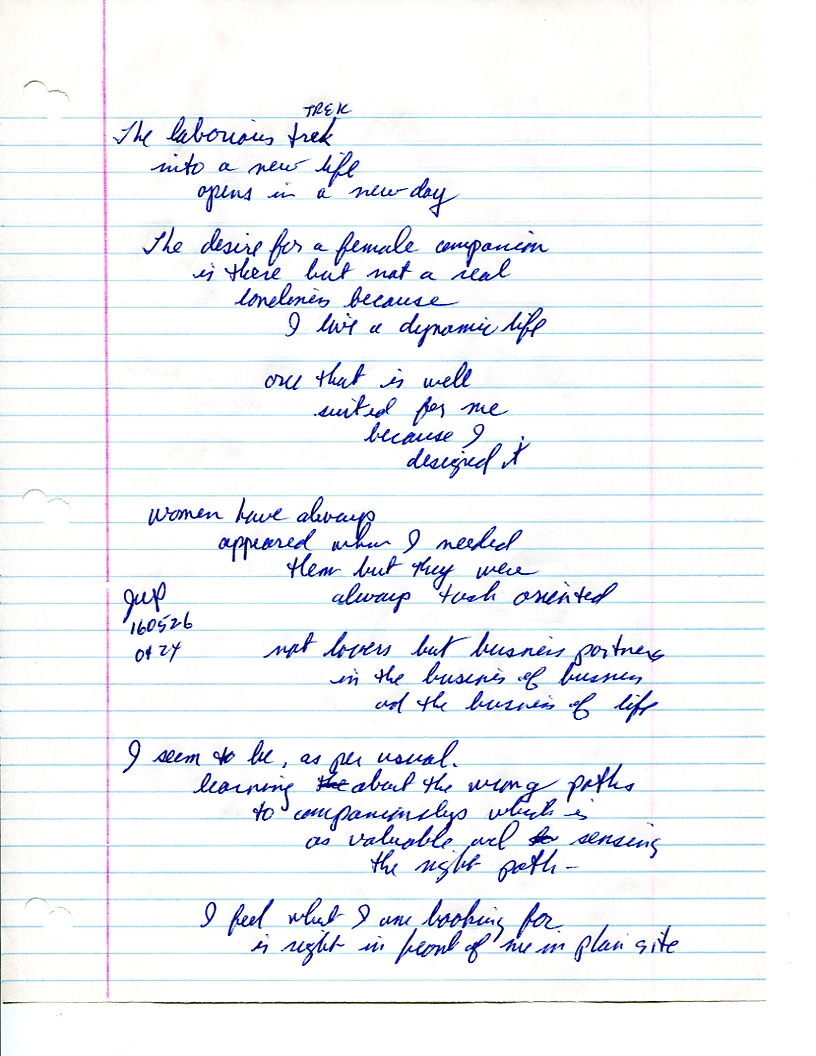 TREK
The laborious trek
into a new life
opens in a new day
The desire for a female companion
is there but not a real
loneliness because
I live a dynamic life
one that is well
suited for me
because I
designed it
women have always
appeared when I needed
them but they were
always task oriented
JWP
160526
0424
not lovers but business partners
in the business of business
and the business of life
I seem to be, as per usual.
learning the about the wrong paths
to companionships which is
as valuable and to sensing
the right path -
I feel what I am looking for
is right in front of me in plain site